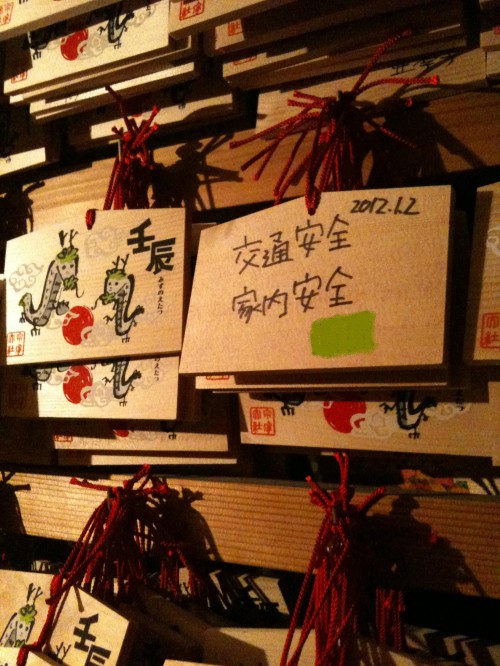 壬辰
みずのえたつ
2012.1.2
交通安全
家内安全
壬辰